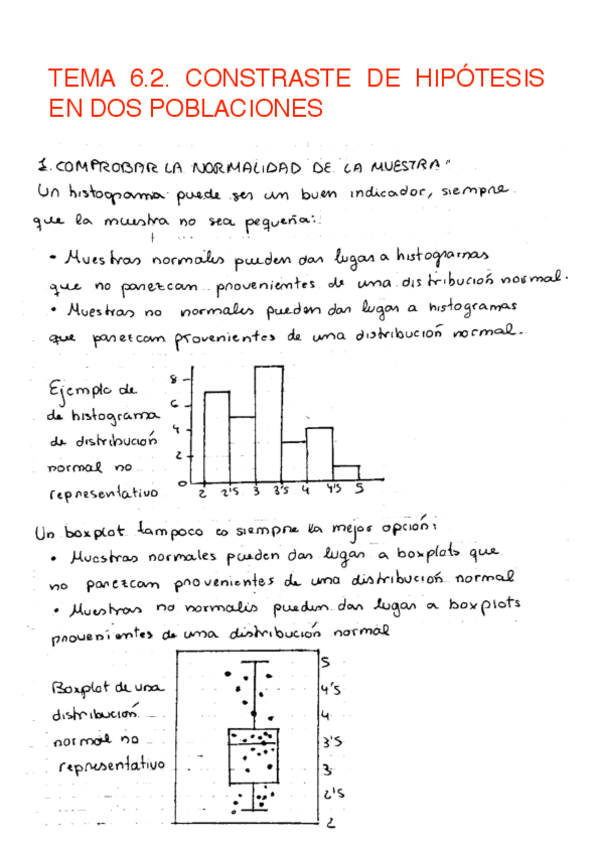 TEMA 6.2. CONSTRASTE DE HIPÓTESIS
EN DOS POBLACIONES
1. COMPROBAR LA NORMALIDAD DE LA MUESTRA"
Un histograma puede ser un buen indicador, siempre
que la muestra no sea pequeña:
• Muestras normales pueden dar lugar a histogramas
que no parezcan provenientes de una distribución normal.
• Muestras no normales pueden dar lugar a histogramas
que parezcan provenientes de una distribución normal.
Ejemplo de
de histograma
de distribución
normal no
representativo
8
6
4
2
0
2 2'5 3 3'5 4 4'5 5
Un boxplot tampoco es siempre la mejor opción:
• Muestras normales pueden dar lugar a boxplots que
no parezcan provenientes de una distribución normal
• Muestras no normales pueden dar lugar a boxplots
provenientes de una distribución normal
Boxplot de una
distribución
normal no
representativo
5
4'5
4
3'5
3
2'5
2